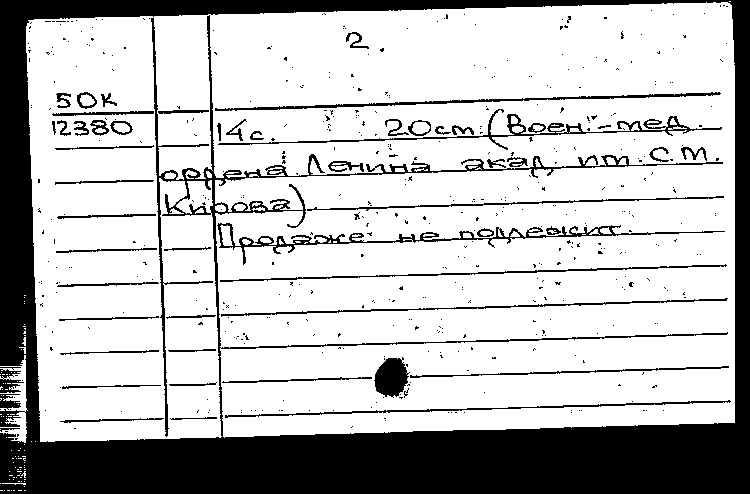 2.
50к
12380 14с. 20см (Воен.-мед.
ордена Ленина акад. им. С.М.
Кирова)
Продаже не подлежит.